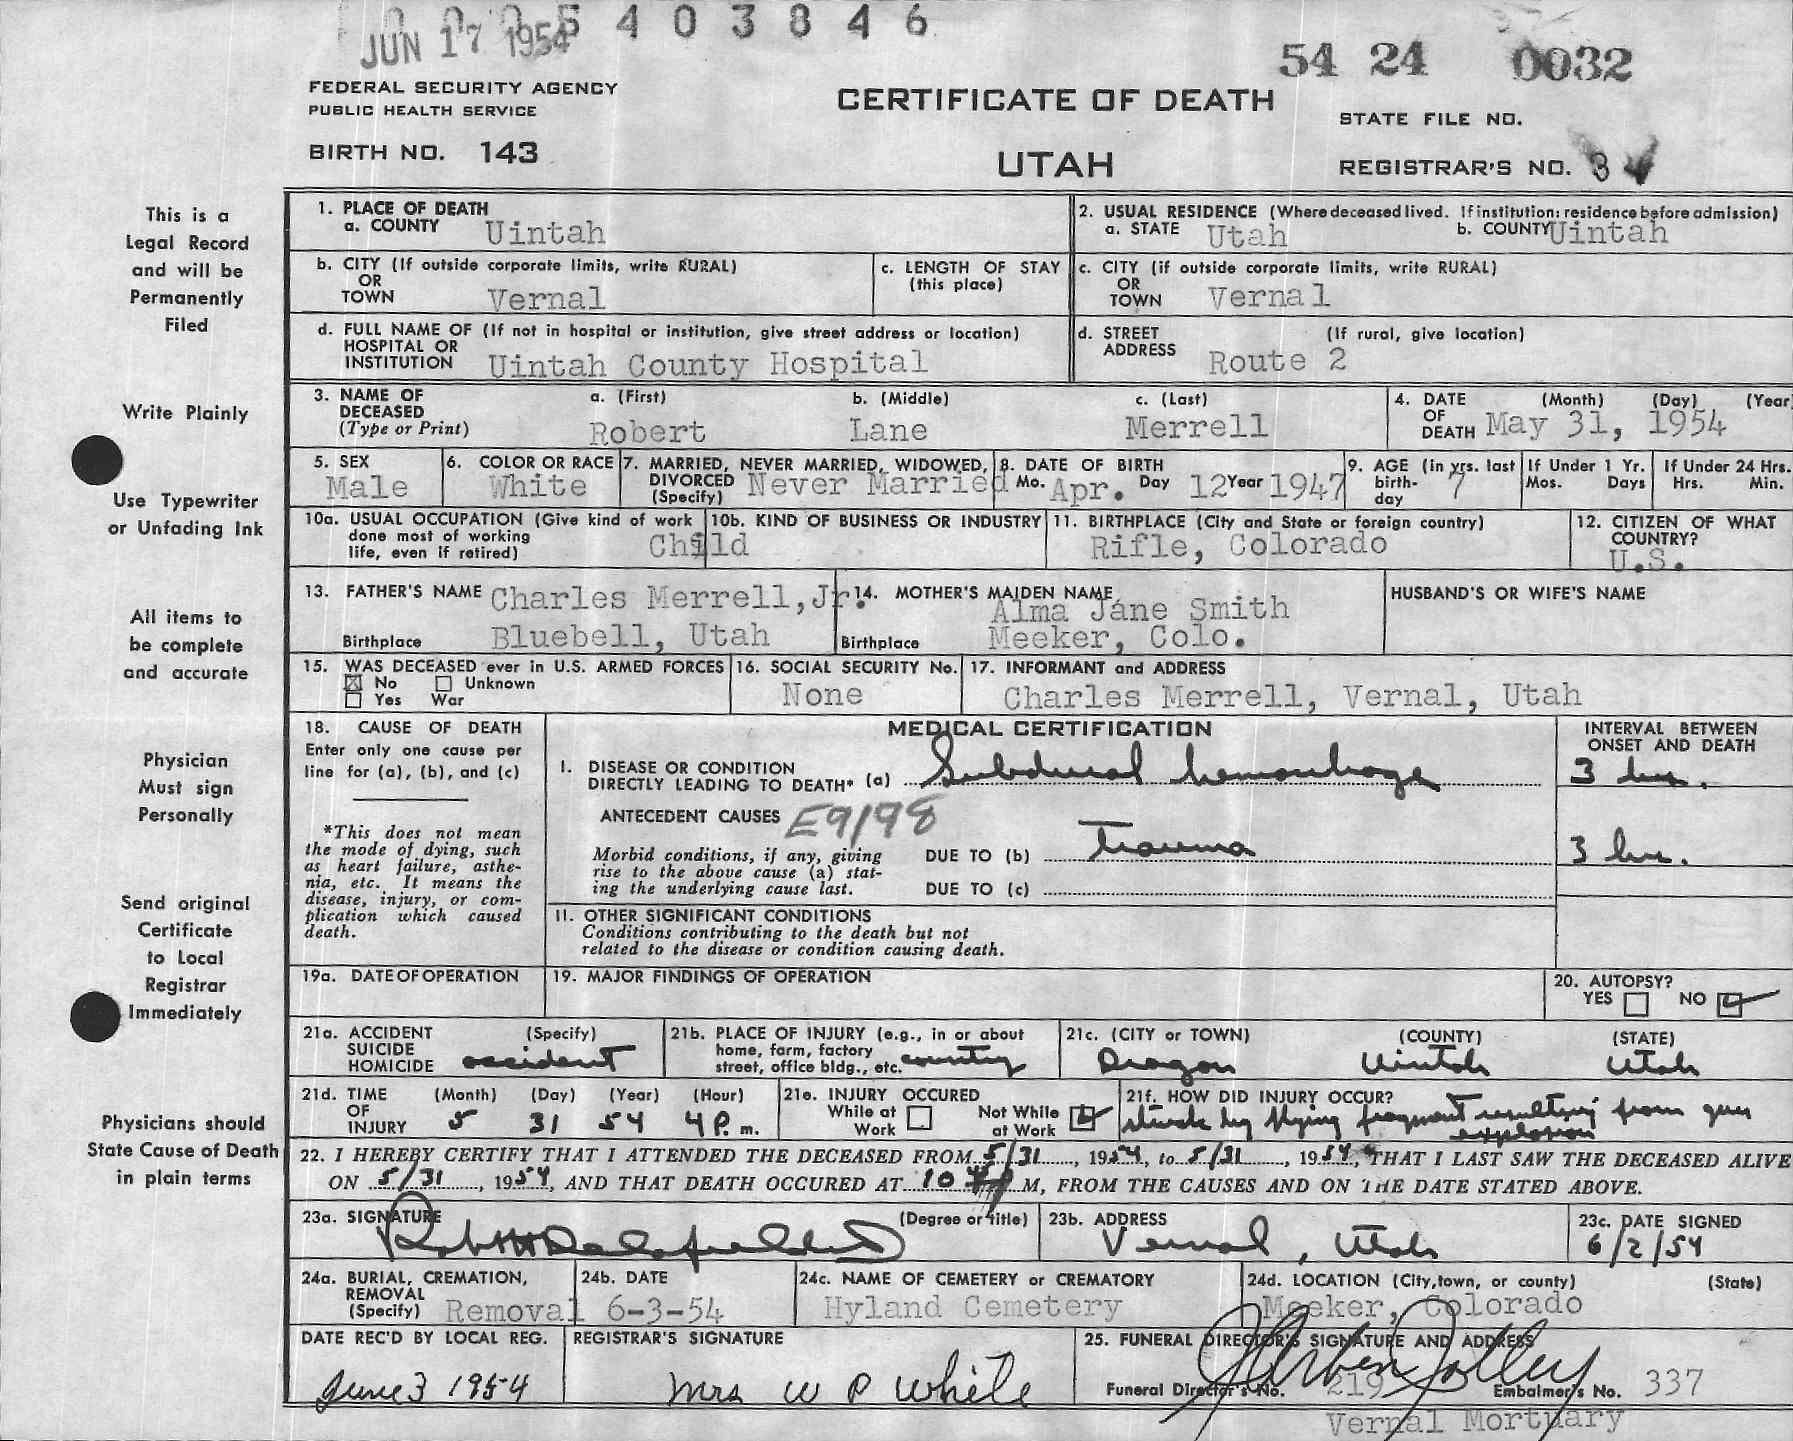 JUN 17 1954 5403846
54 24 0032
FEDERAL SECURITY AGENCY
PUBLIC HEALTH SERVICE
CERTIFICATE OF DEATH
STATE FILE NO.
BIRTH NO. 143
UTAH
REGISTRAR'S NO. 3
This is a
Legal Record
and will be
Permanently
Filed
Write Plainly
Use Typewriter
or Unfading Ink
All items to
be complete
and accurate
Physician
Must sign
Personally
Send original
Certificate
to Local
Registrar
Immediately
Physicians should
State Cause of Death
in plain terms
1. PLACE OF DEATH
a. COUNTY Uintah
2. USUAL RESIDENCE (Where deceased lived. If institution: residence before admission)
a. STATE Utah b. COUNTY Uintah
b. CITY (If outside corporate limits, write RURAL)
OR
TOWN Vernal
c. LENGTH OF STAY
(this place)
c. CITY (if outside corporate limits, write RURAL)
OR
TOWN Vernal
d. FULL NAME OF (If not in hospital or institution, give street address or location)
HOSPITAL OR
INSTITUTION Uintah County Hospital
d. STREET (If rural, give location)
ADDRESS Route 2
3. NAME OF a. (First) b. (Middle) c. (Last)
DECEASED
(Type or Print) Robert Lane Merrell
4. DATE (Month) (Day) (Year)
OF
DEATH May 31, 1954
5. SEX
Male
6. COLOR OR RACE
White
7. MARRIED, NEVER MARRIED, WIDOWED,
DIVORCED Never Married
(Specify)
8. DATE OF BIRTH
Mo. Apr. Day 12 Year 1947
9. AGE (in yrs. last
birth-
day 7
If Under 1 Yr.
Mos. Days
If Under 24 Hrs.
Hrs. Min.
10a. USUAL OCCUPATION (Give kind of work
done most of working
life, even if retired) Child
10b. KIND OF BUSINESS OR INDUSTRY
11. BIRTHPLACE (City and State or foreign country)
Rifle, Colorado
12. CITIZEN OF WHAT
COUNTRY?
U.S.
13. FATHER'S NAME Charles Merrell, Jr.
Birthplace Bluebell, Utah
14. MOTHER'S MAIDEN NAME
Alma Jane Smith
Birthplace Meeker, Colo.
HUSBAND'S OR WIFE'S NAME
15. WAS DECEASED ever in U.S. ARMED FORCES
No Unknown
Yes War
16. SOCIAL SECURITY No.
None
17. INFORMANT and ADDRESS
Charles Merrell, Vernal, Utah
18. CAUSE OF DEATH
Enter only one cause per
line for (a), (b), and (c)
*This does not mean
the mode of dying, such
as heart failure, asthe-
nia, etc. It means the
disease, injury, or com-
plication which caused
death.
MEDICAL CERTIFICATION
INTERVAL BETWEEN
ONSET AND DEATH
I. DISEASE OR CONDITION
DIRECTLY LEADING TO DEATH* (a) Subdural hemorrhage 3 hrs.
ANTECEDENT CAUSES E9198
Morbid conditions, if any, giving
rise to the above cause (a) stat-
ing the underlying cause last.
DUE TO (b) Trauma 3 hrs.
DUE TO (c)
II. OTHER SIGNIFICANT CONDITIONS
Conditions contributing to the death but not
related to the disease or condition causing death.
19a. DATE OF OPERATION
19. MAJOR FINDINGS OF OPERATION
20. AUTOPSY?
YES NO
21a. ACCIDENT (Specify)
SUICIDE
HOMICIDE accident
21b. PLACE OF INJURY (e.g., in or about
home, farm, factory
street, office bldg., etc. country
21c. (CITY or TOWN) (COUNTY) (STATE)
Dragon Uintah Utah
21d. TIME (Month) (Day) (Year) (Hour)
OF
INJURY 5 31 54 4 P. m.
21e. INJURY OCCURED
While at Not While
Work at Work
21f. HOW DID INJURY OCCUR?
struck by flying fragment resulting from gun
explosion
22. I HEREBY CERTIFY THAT I ATTENDED THE DECEASED FROM 5/31, 1954, to 5/31, 1954, THAT I LAST SAW THE DECEASED ALIVE
ON 5/31, 1954, AND THAT DEATH OCCURED AT 10 M, FROM THE CAUSES AND ON THE DATE STATED ABOVE.
23a. SIGNATURE (Degree or title)
23b. ADDRESS
Vernal, Utah
23c. DATE SIGNED
6/2/54
24a. BURIAL, CREMATION,
REMOVAL
(Specify) Removal
24b. DATE
6-3-54
24c. NAME OF CEMETERY or CREMATORY
Hyland Cemetery
24d. LOCATION (City, town, or county) (State)
Meeker, Colorado
DATE REC'D BY LOCAL REG.
June 3 1954
REGISTRAR'S SIGNATURE
Mrs W P White
25. FUNERAL DIRECTOR'S SIGNATURE AND ADDRESS
Funeral Director's No. 219 Embalmer's No. 337
Vernal Mortuary